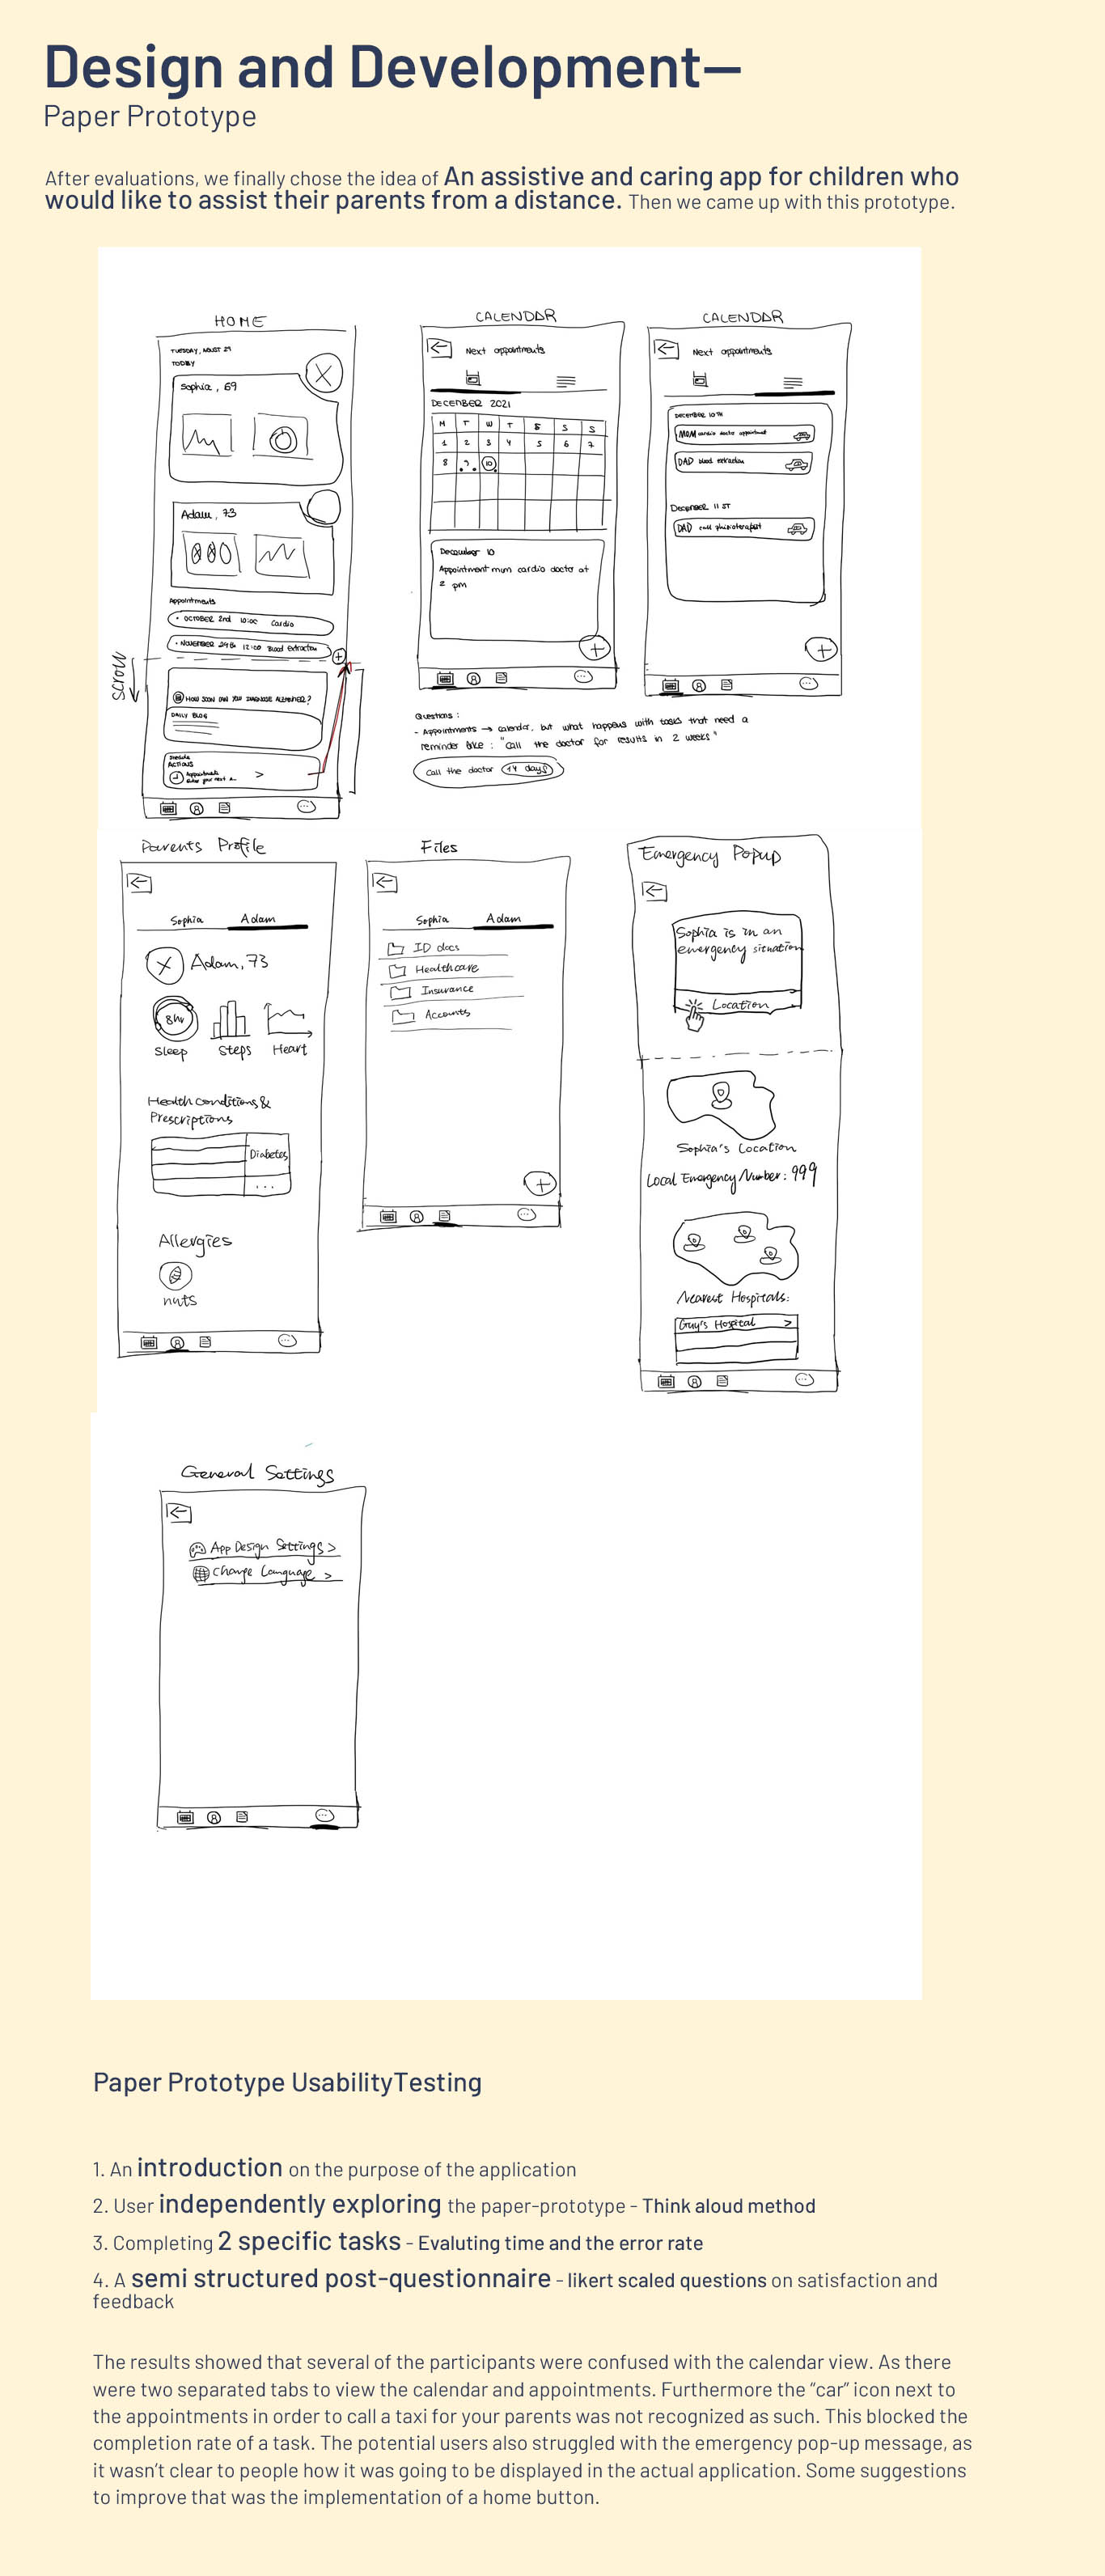 Design and Development—
Paper Prototype
After evaluations, we finally chose the idea of An assistive and caring app for children who
would like to assist their parents from a distance. Then we came up with this prototype.
HOME
TUESDAY, AGUST 29
TODAY
Sophia, 69
Adam, 73
Appointments
• OCTOBER 2nd 10:00 Cardio
• NOVEMBER 29th 12:00 Blood extraction
SCROLL
HOW SOON CAN YOU DIAGNOSE ALZHEIMER?
DAILY BLOG
ACTIONS
Appointments
CALENDAR
Next appointments
DECEMBER 2021
M T W T F S S
1 2 3 4 5 6 7
8 9 10
December 10
Appointment mum cardio doctor at
2 pm
CALENDAR
Next appointments
DECEMBER 10TH
MOM cardio doctor appointment
DAD blood extraction
December 11 ST
DAD call phisioterapist
Questions:
- Appointments → calendar, but what happens with tasks that need a
reminder like: "call the doctor for results in 2 weeks"
Call the doctor 14 days
Parents Profile
Sophia Adam
Adam, 73
8hr
Sleep Steps Heart
Health conditions &
Prescriptions
Diabetes
...
Allergies
nuts
Files
Sophia Adam
ID docs
Healthcare
Insurance
Accounts
Emergency Popup
Sophia is in an
emergency situation
Location
Sophia's Location
Local Emergency Number: 999
Nearest Hospitals:
Guy's Hospital >
General Settings
App Design Settings >
Change Language >
Paper Prototype UsabilityTesting
1. An introduction on the purpose of the application
2. User independently exploring the paper-prototype - Think aloud method
3. Completing 2 specific tasks - Evaluting time and the error rate
4. A semi structured post-questionnaire - likert scaled questions on satisfaction and
feedback
The results showed that several of the participants were confused with the calendar view. As there
were two separated tabs to view the calendar and appointments. Furthermore the “car” icon next to
the appointments in order to call a taxi for your parents was not recognized as such. This blocked the
completion rate of a task. The potential users also struggled with the emergency pop-up message, as
it wasn’t clear to people how it was going to be displayed in the actual application. Some suggestions
to improve that was the implementation of a home button.